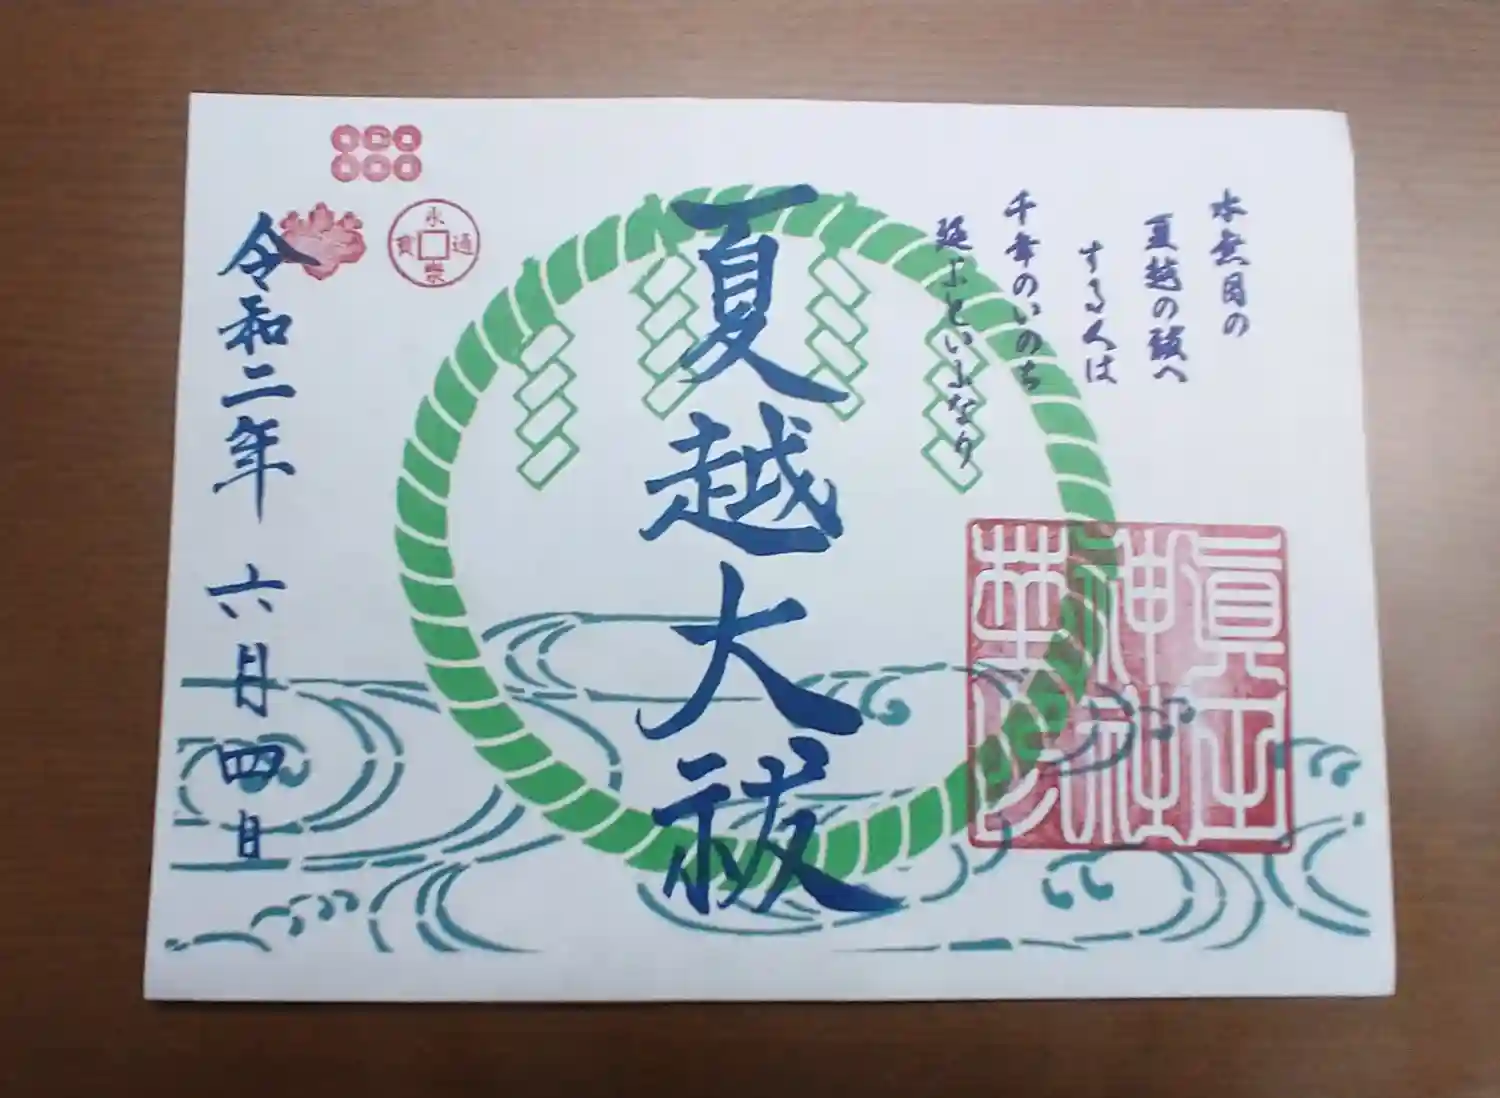 水無月の
夏越の祓へ
する人は
千年のいのち
延ぶといふなり
夏越大祓
永樂通寳
令和二年 六月四日